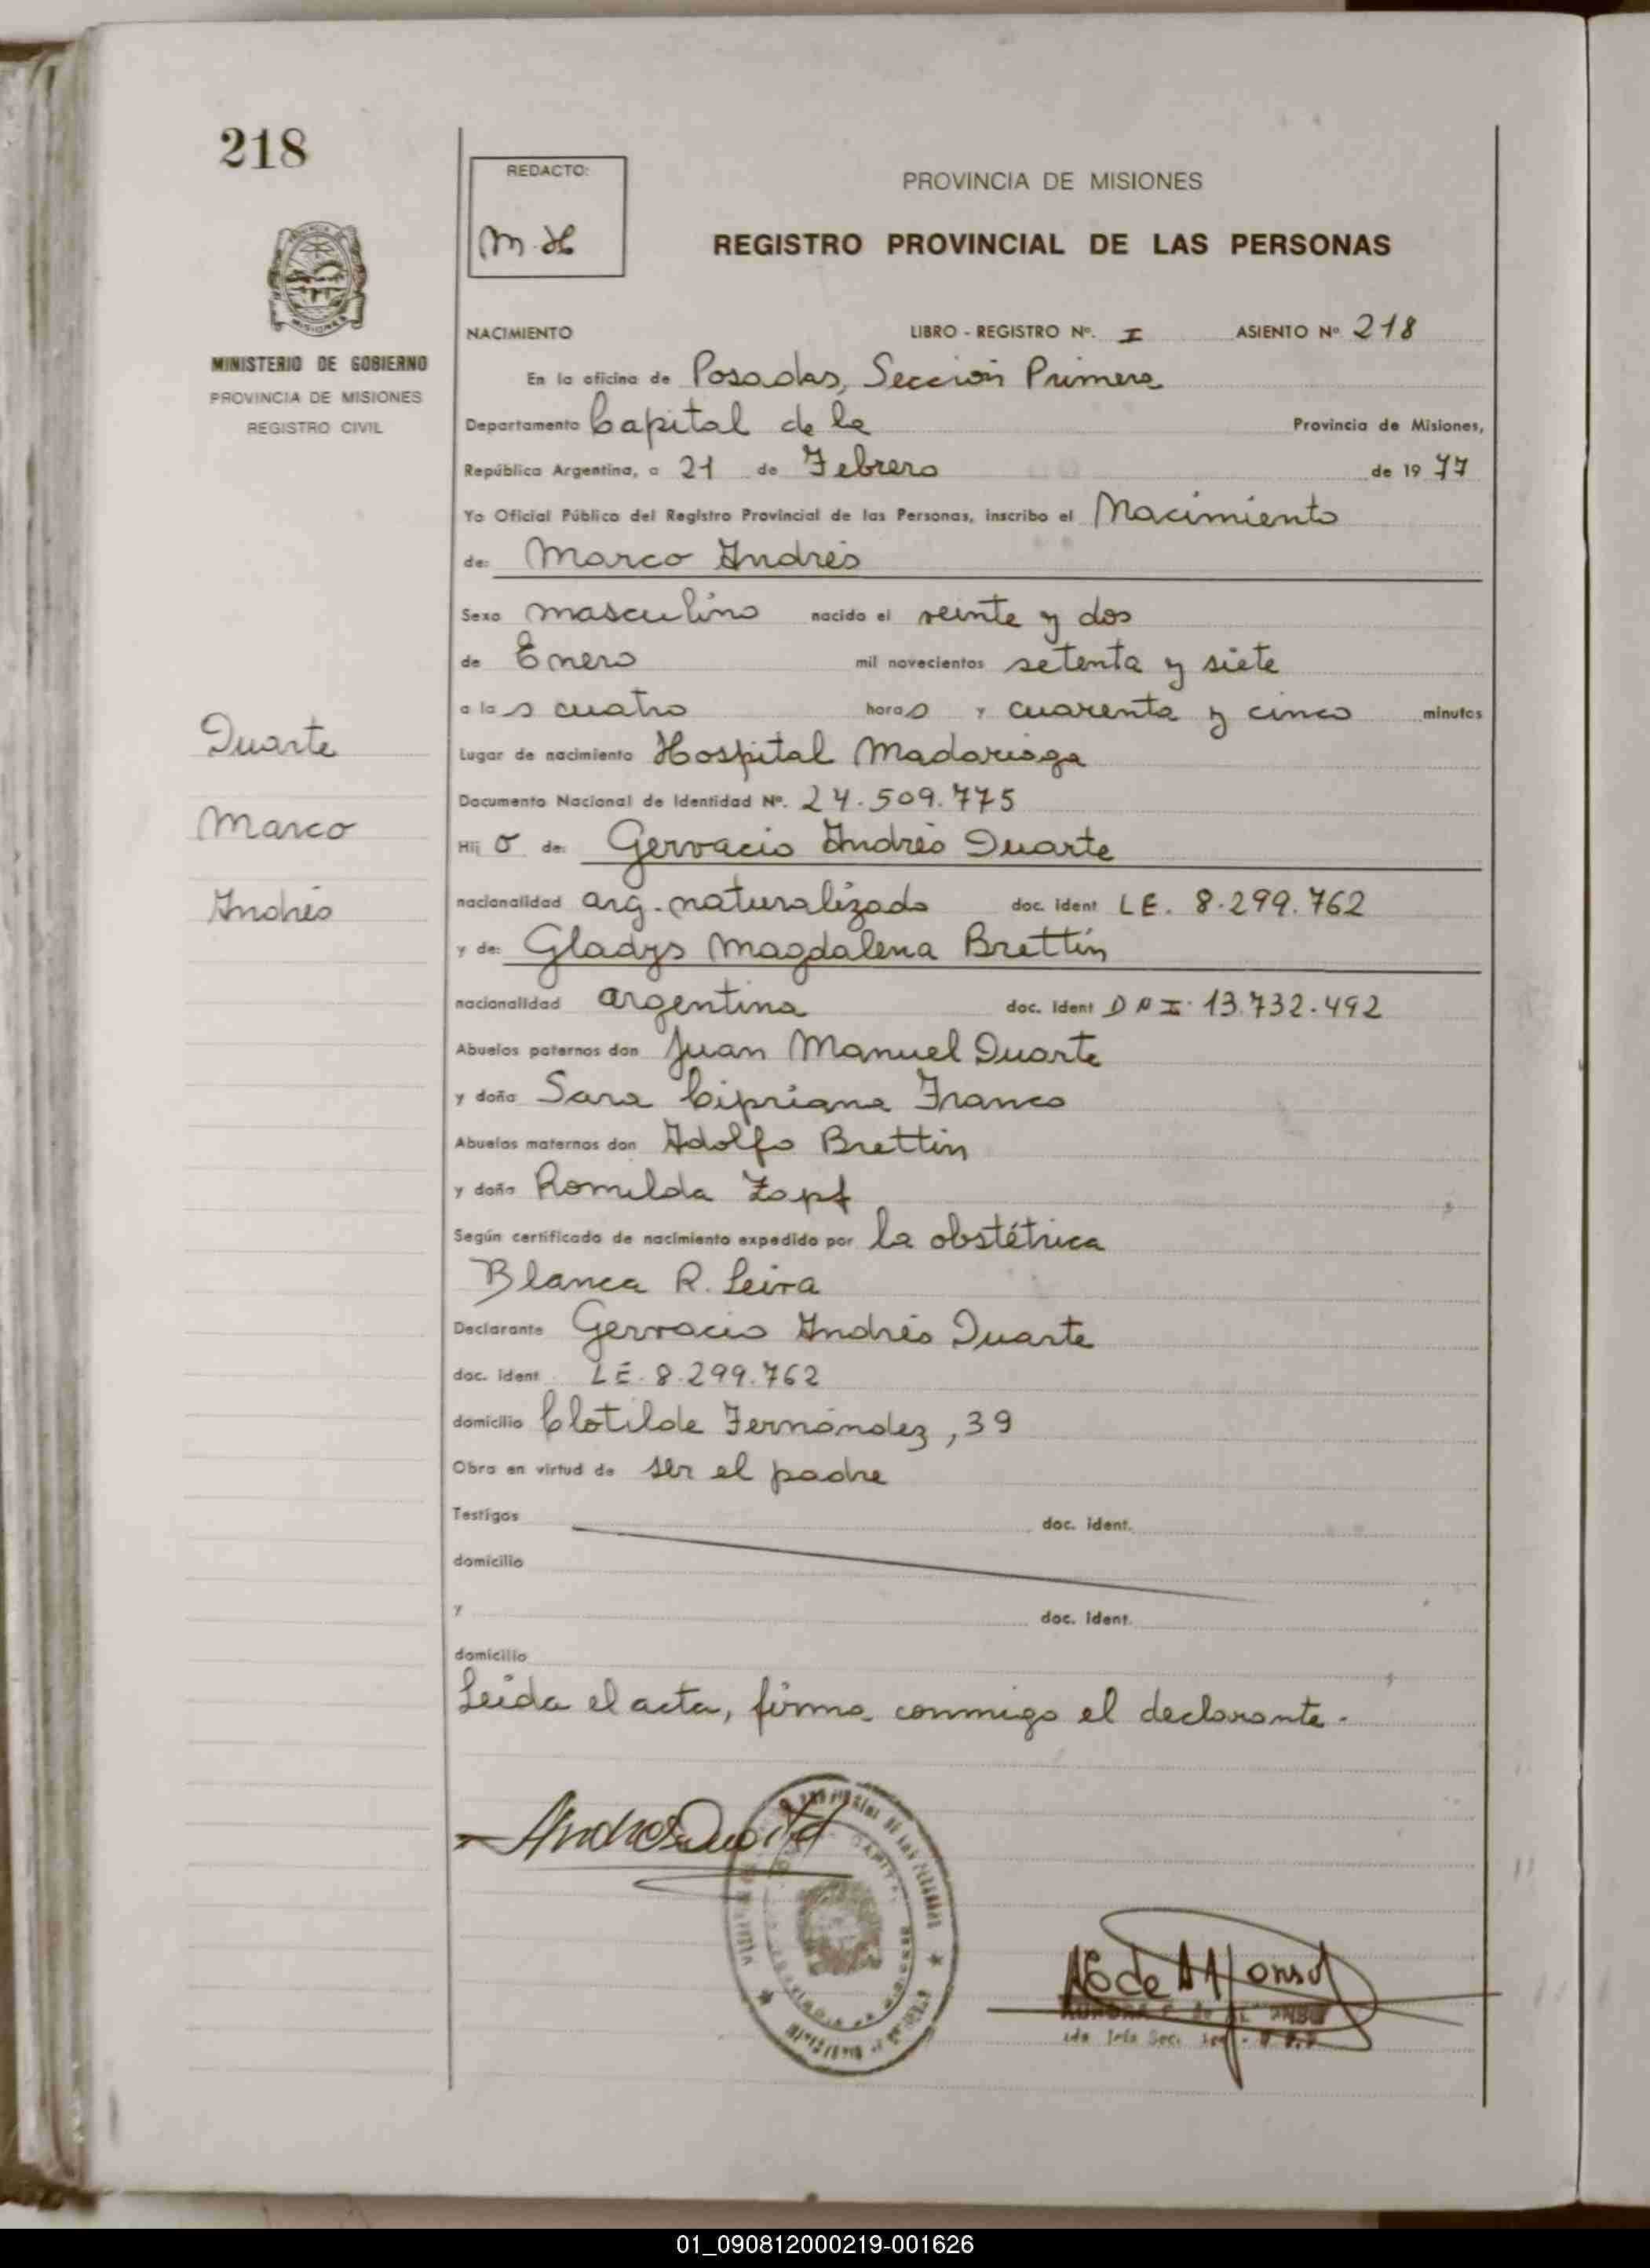 218
MINISTERIO DE GOBIERNO
PROVINCIA DE MISIONES
REGISTRO CIVIL
Duarte
Marco
Andrés
REDACTO:
M.H
PROVINCIA DE MISIONES
REGISTRO PROVINCIAL DE LAS PERSONAS
NACIMIENTO LIBRO - REGISTRO Nº. I ASIENTO Nº 218
En la oficina de Posadas, Sección Primera
Departamento Capital de la Provincia de Misiones,
República Argentina, a 21 de Febrero de 1977
Yo Oficial Público del Registro Provincial de las Personas, inscribo el Nacimiento
de: Marco Andrés
Sexo masculino nacido el veinte y dos
de Enero mil novecientos setenta y siete
a las cuatro horas y cuarenta y cinco minutos
Lugar de nacimiento Hospital Madariaga
Documento Nacional de Identidad Nº. 24.509.775
Hijo de: Gervacio Andrés Duarte
nacionalidad arg. naturalizado doc. ident LE. 8.299.762
y de: Gladys Magdalena Brettin
nacionalidad argentina doc. ident DNI. 13.732.492
Abuelos paternos don Juan Manuel Duarte
y doña Sara Cipriana Franco
Abuelos maternos don Adolfo Brettin
y doña Romilda Zapf
Según certificado de nacimiento expedido por la obstétrica
Blanca R. Leiva
Declarante Gervacio Andrés Duarte
doc. ident LE. 8.299.762
domicilio Clotilde Fernández, 39
Obra en virtud de ser el padre
Testigos doc. ident.
domicilio
y doc. ident.
domicilio
Leída el acta, firma conmigo el declarante.
01_090812000219-001626